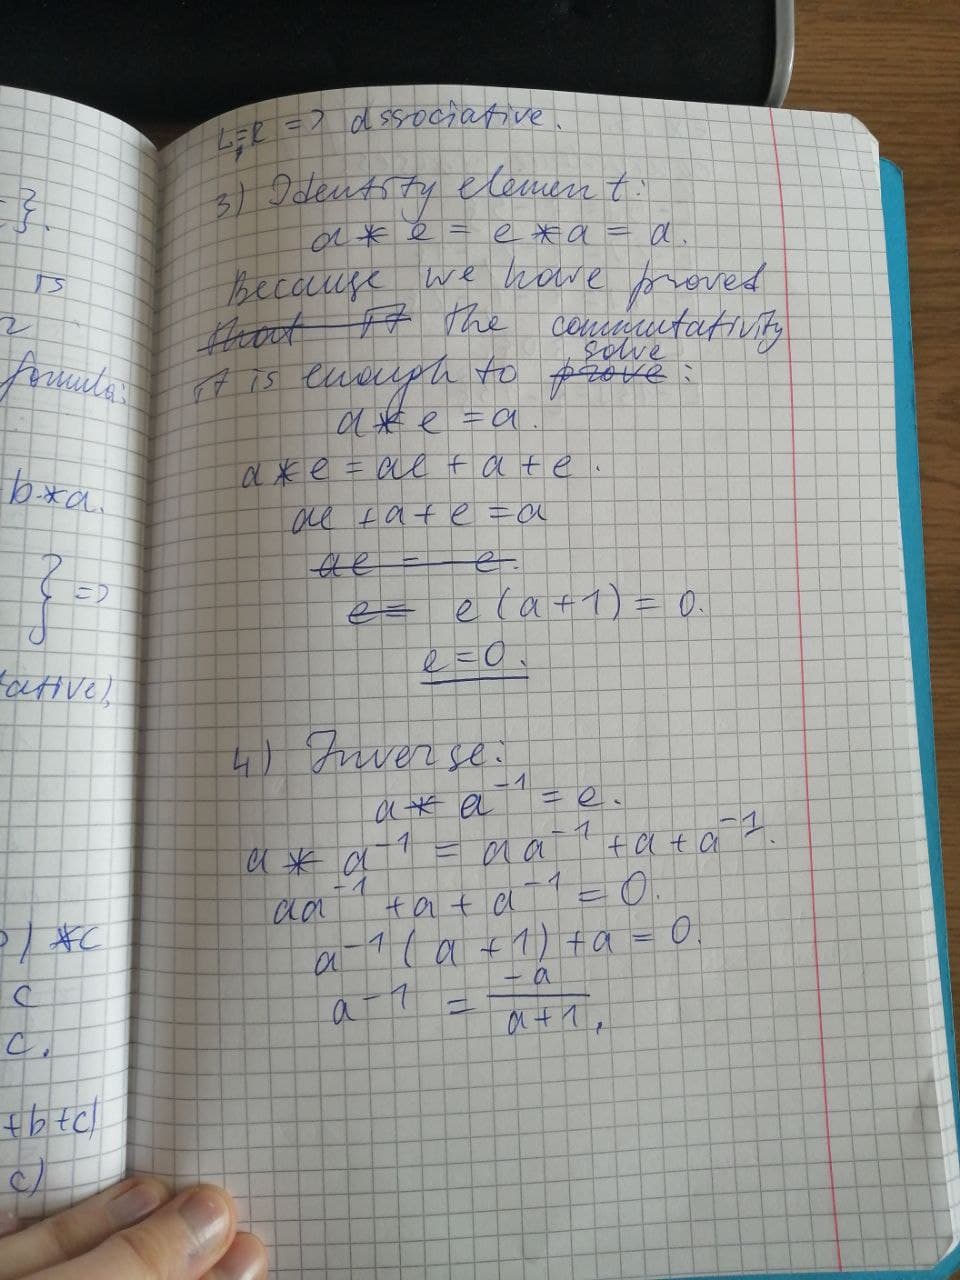 ={.
is
formula:
b*a.
} =>
tative),
) *c
c
c.
+b+c)
c)
L=R => associative.
3) Identity element:
a * e = e * a = a.
Because we have proved
that it the commutativity
it is enough to prove solve:
a * e = a.
a * e = ae + a + e.
ae + a + e = a
ae = e.
e = e (a + 1) = 0.
e = 0.
4) Inverse:
a * a⁻¹ = e.
a * a⁻¹ = aa⁻¹ + a + a⁻¹.
aa⁻¹ + a + a⁻¹ = 0.
a⁻¹ (a + 1) + a = 0.
a⁻¹ = -a / a+1,